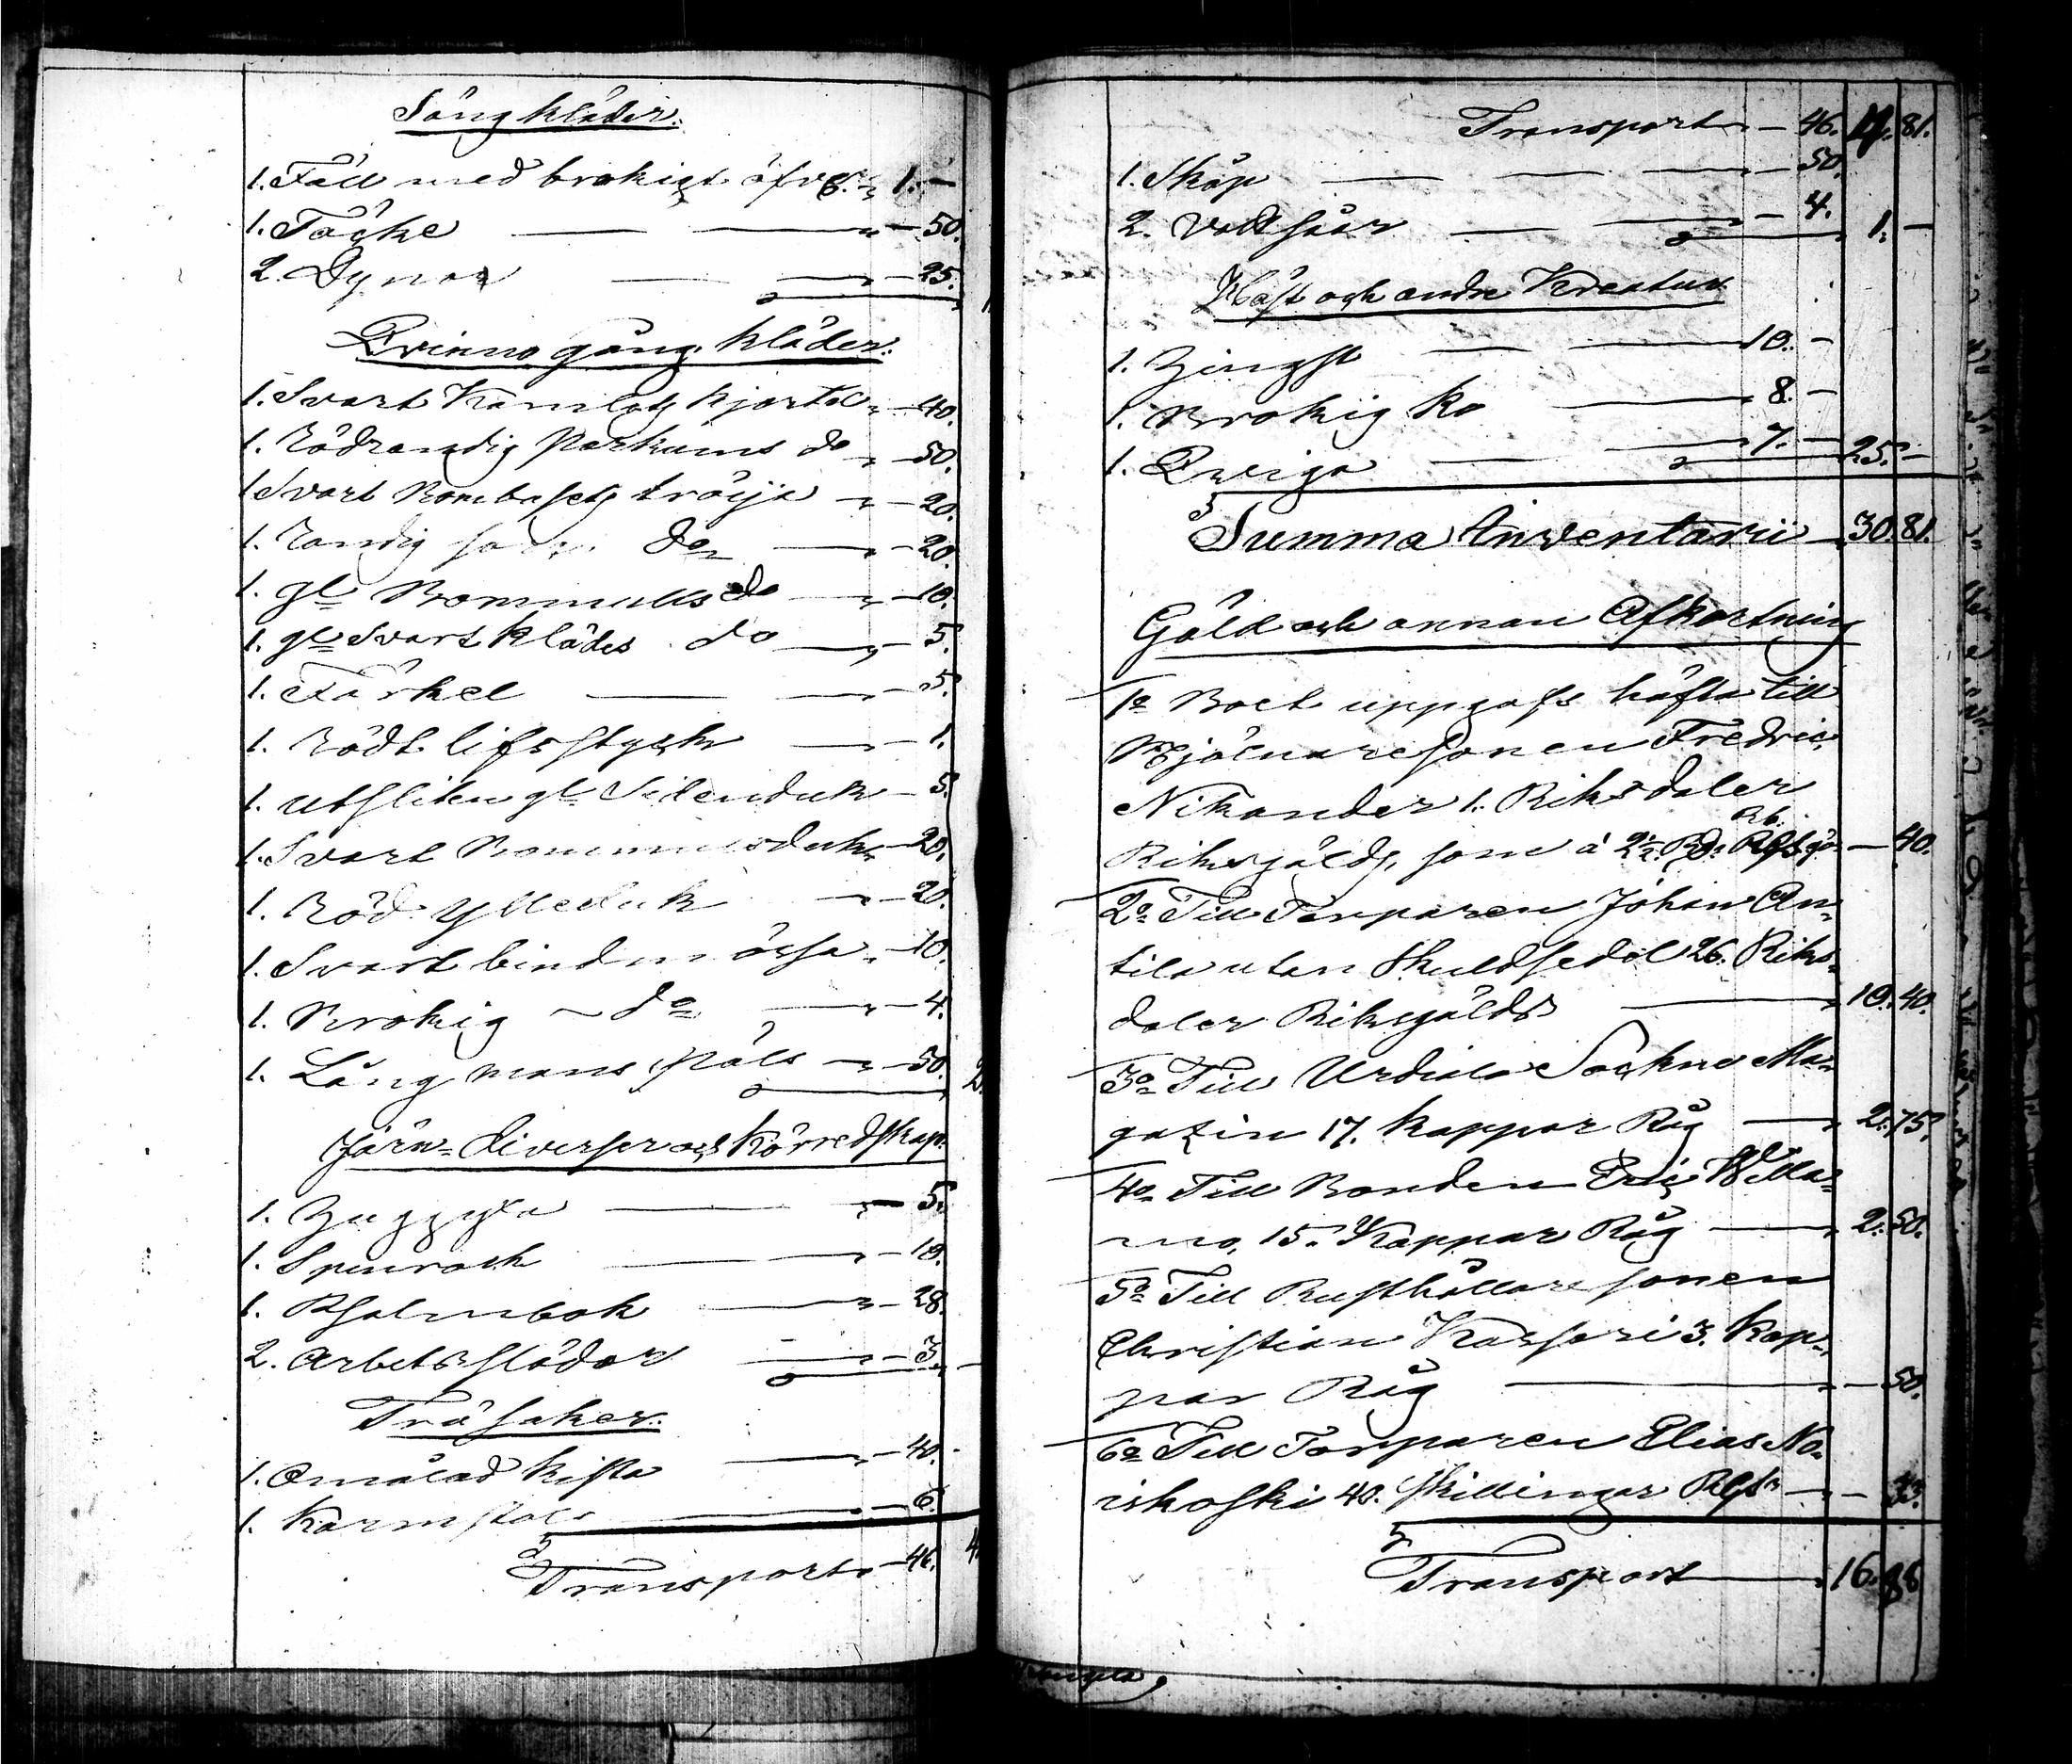 Sängkläder.
1. Fäll med brokigt öfvg. " 1. —
1. Täcke — — " — 50.
2. Dynor — — " — 25.
Qvinno gång kläder.
1. Svart Kamlots kjortel " — 40.
1. Rödrandig Parkums do " — 50.
1 Svart Bombasets tröija — " — 20.
1. Randig do — " — 20.
1. gl Bommulls do — " — 10.
1. gl Svart klädes do — " — 5.
1. Förkel — — " — 5.
1. Rödt lifsstycke — " — 1.
1. utsliten gl Silkesduk — 5.
1. Svart Bommulsduk " — 20.
1. Röd Ylleduk — " — 20.
1. Svart bindmössa " — 10.
1. Brokig do — " — 4.
1. Lång mans päls — " — 50.
Järn- diverser och Körredskap.
1. — " — 5.
1. Spinrock — " — 10.
1. Psalmbok — " — 28.
2. Arbetsslädar — " — 3.
Träsaker.
1. Omålad kista — " — 40.
1. Karmstol — " — 6.
Transport — 46.
Transport " — 46. 4. 81.
1. Skåp — — — " — 50.
2. Vattsåar — — " — 4. 1. —
Häst och andre Kreatur
1. Hingst — — 10. —
1. Brokig Ko — 8. —
1. Qviga — — 7. — 25. —
Summa Inventarii — 30. 81.
Gäld och annan Afkortning
1o Boet uppgafs häfta till
Mjölnaresonen Fredric
Nikander 1. Riksdaler
Rb.
Riksgälds, som á 2½ Rd — 40.
2o Till Torparen Johan An-
tila utan Skuldsedel 26. Riks-
daler Riksgälds — " 10. 40.
3o Till Urdiala Sockne Ma-
gazin 17. kappar Råg — " 2. 75.
4o Till Bonden Eric Willa-
mo, 15. Kappar Råg — " 2. 50.
5o Till Rusthållare sonen
Christian Kassari 3. Kap-
par Råg — " — 50.
6o Till Torparen Elias No-
iskoski 40. skillingar Rgs — " — 33.
Transport — " 16. 88